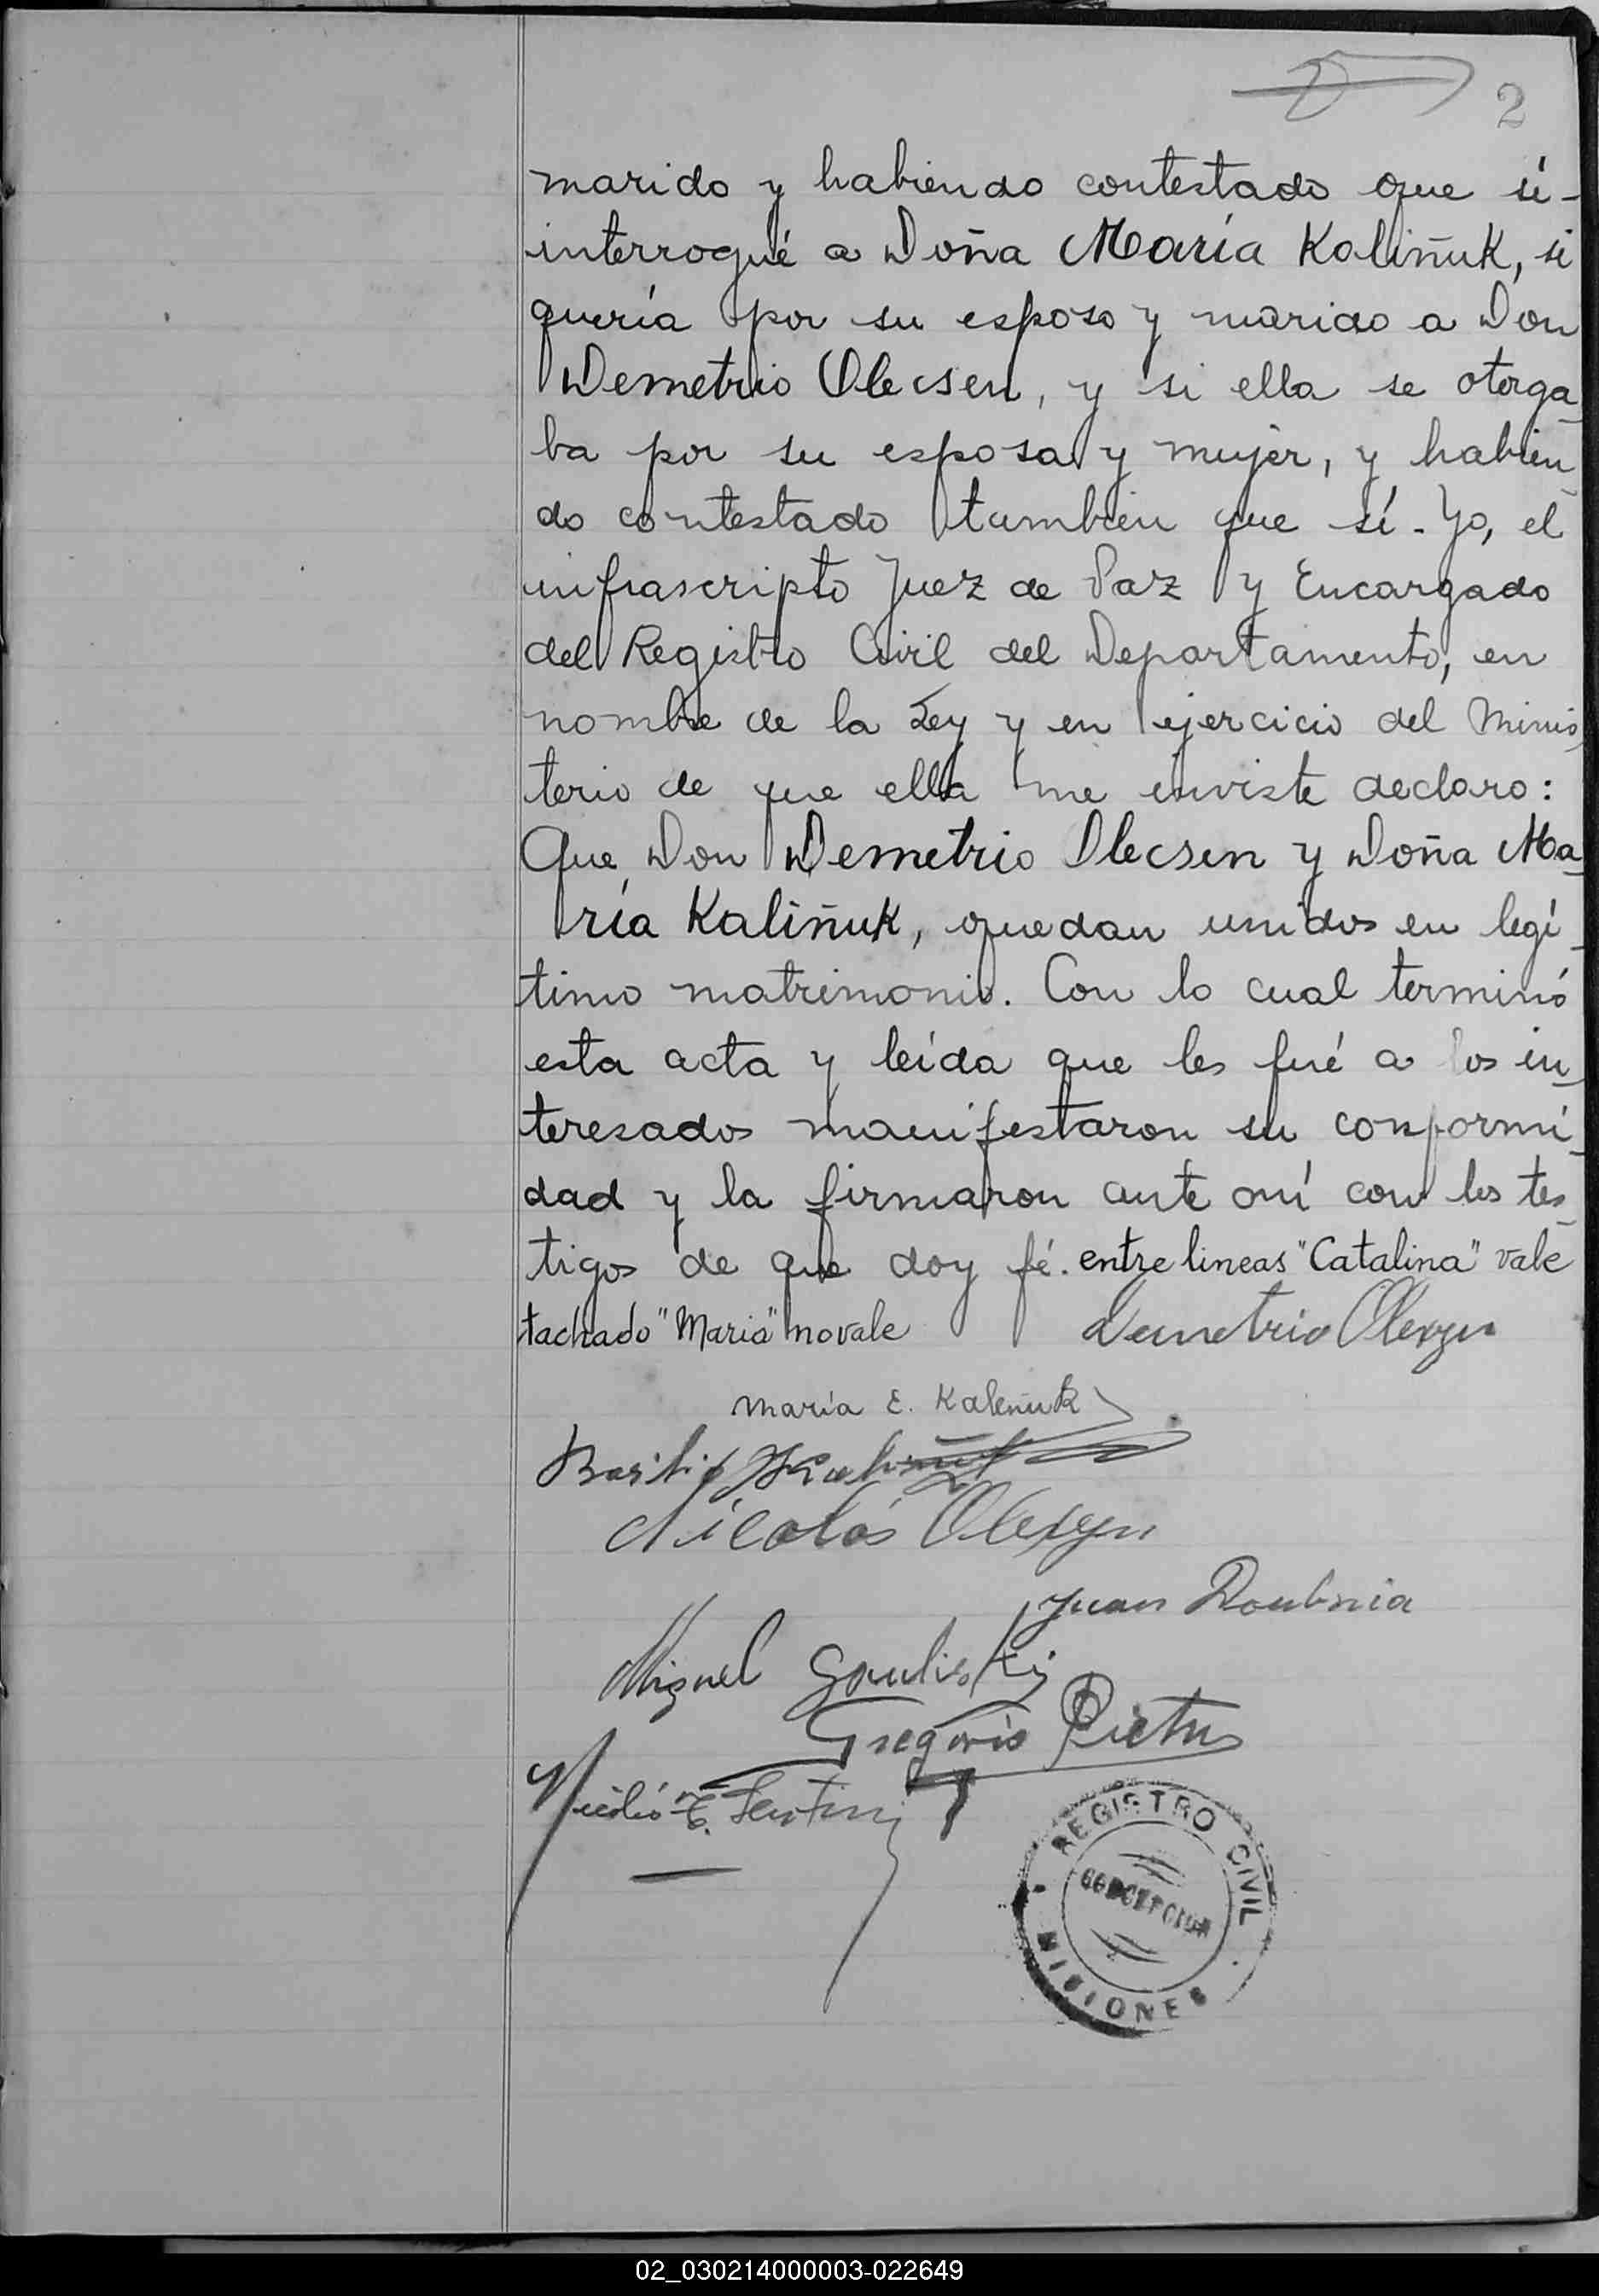 2
marido y habiendo contestado que sí-
interrogué a Doña María Kaliñuk, si
quería por su esposo y marido a Don
Demetrio Olecsen, y si ella se otorga_
ba por su esposa y mujer, y habien_
do contestado tambien que sí. Yo, el
infrascripto Juez de Paz y Encargado
del Registro Civil del Departamento, en
nombre de la Ley y en ejercicio del Minis_
terio de que ella me inviste declaro:
Que Don Demetrio Olecsen y Doña Ma_
ría Kaliñuk, quedan unidos en legí_
timo matrimonio. Con lo cual terminó
esta acta y leída que les fué a los in_
teresados manifestaron su conformi_
dad y la firmaron ante mí con los tes_
tigos de que doy fé. entre lineas "Catalina" vale
tachado "Maria" no vale
Demetrio Olexyn
María E. Kaleñuk
Basilio
Nicolás Olexyn
Juan
Miguel
Gregorio
REGISTRO CIVIL
CONCEPCION
MISIONES
02_030214000003-022649